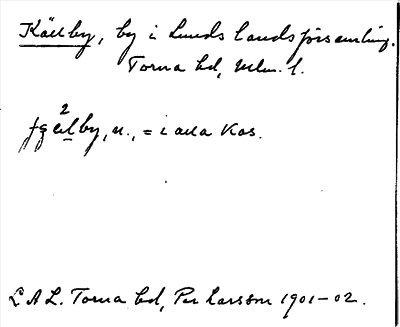 Källby, by i Lunds landsförsamling.
Torna hd, Mlm. l.
2
by, n., = i alla Kas.
L A L. Torna hd, Per Larsson 1901–02.